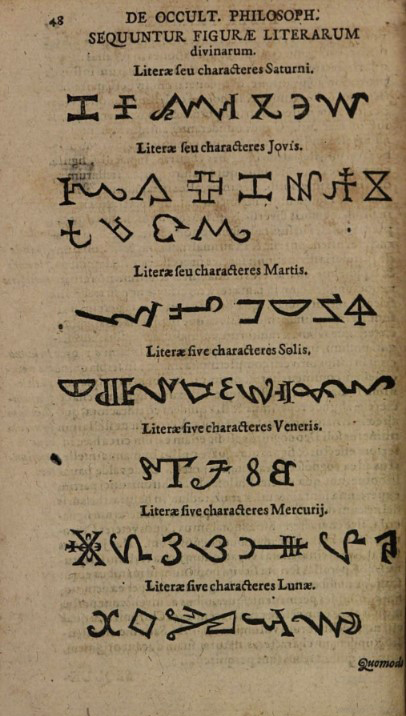 48 DE OCCULT. PHILOSOPH.
SEQUUNTUR FIGURÆ LITERARUM
divinarum.
Literæ ſeu characteres Saturni.
Literæ ſeu characteres Jovis.
Literæ ſeu characteres Martis.
Literæ ſive characteres Solis,
Literæ ſive characteres Veneris.
Literæ ſive characteres Mercurij.
Literæ ſive characteres Lunæ.
Quomodo